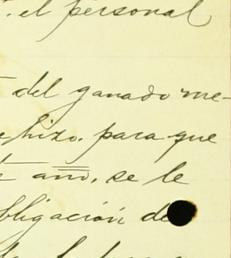 el personal
del ganado me-
hizo, para que
año, se le
bligación de